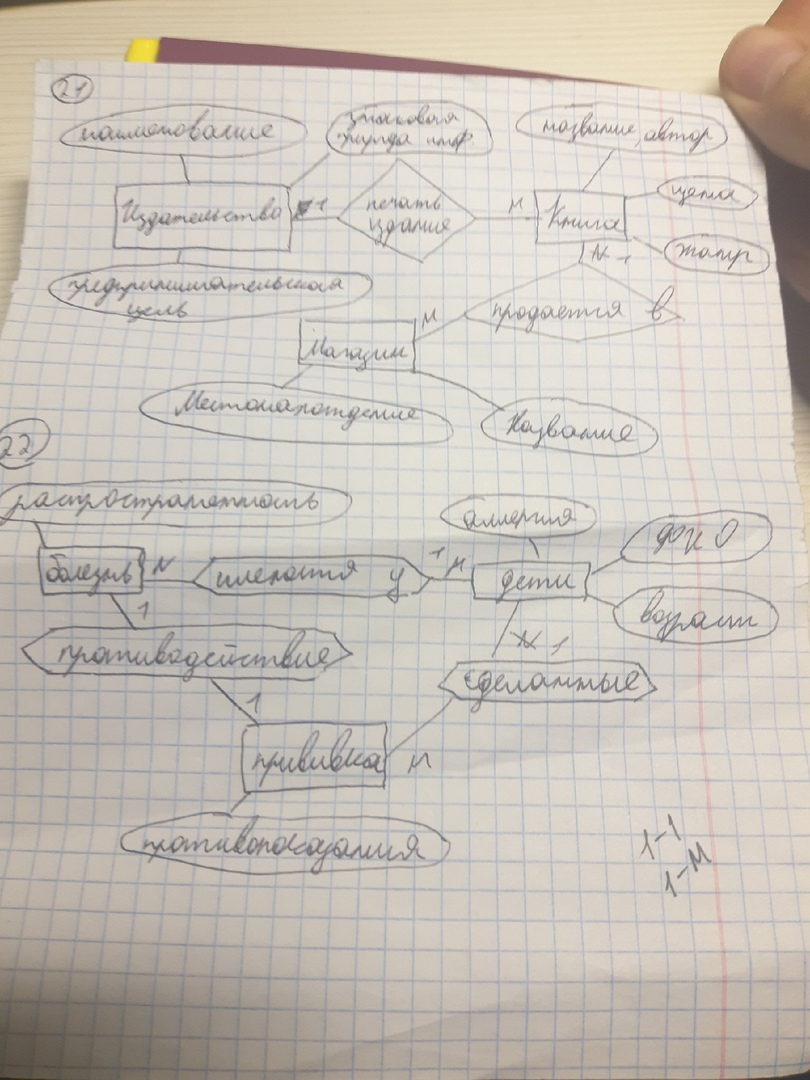 21
наименование
знаковая
природа инф.
название, автор
Издательство
1
печать
издание
М
Книга
цена
жанр
N 1
предпринимательская
цель
Магазин
М
продается в
Местонахождение
Название
22
распространенность
аллергия
ФИО
болезнь
N
имеются у
1
М
дети
возраст
1
противодействие
N 1
сделанные
1
прививка
М
противопоказания
1-1
1-М